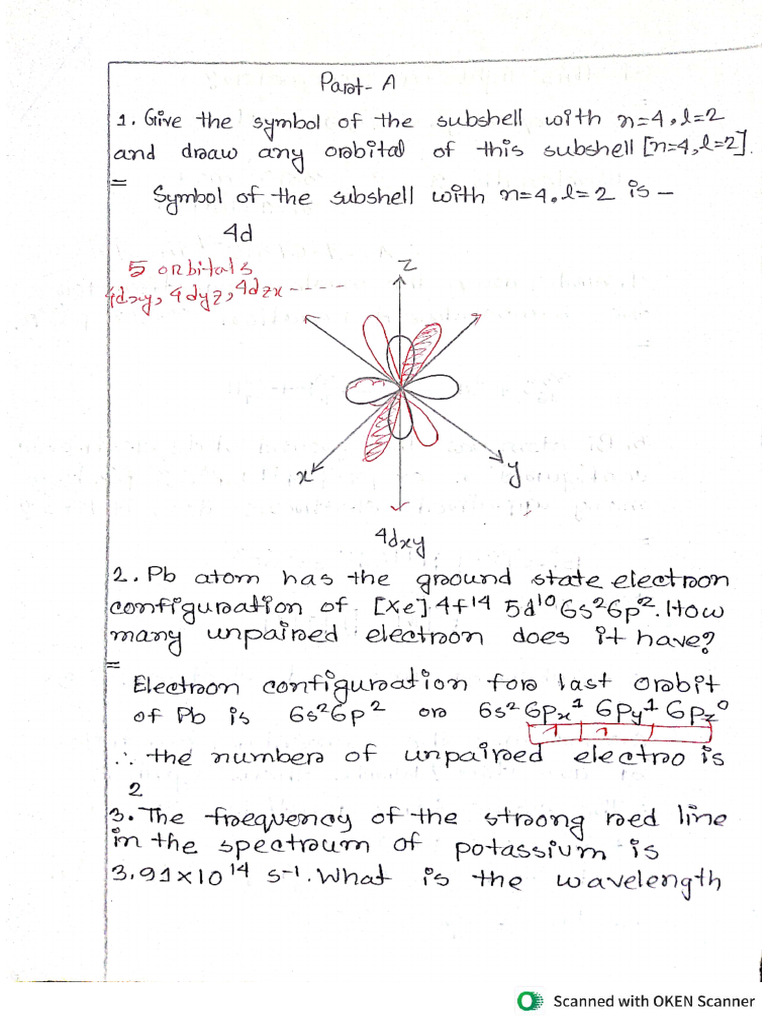 Part-A
1. Give the symbol of the subshell with n=4, l=2
and draw any orbital of this subshell [n=4, l=2].
=
Symbol of the subshell with n=4. l=2 is -
4d
5 orbitals
4dxy, 4dyz, 4dzx -----
z
x
y
4dxy
2. Pb atom has the ground state electron
configuration of [Xe] 4f¹⁴ 5d¹⁰ 6s² 6p². How
many unpaired electron does it have?
=
Electron configuration for last orbit
of Pb is 6s² 6p² or 6s² 6px¹ 6py¹ 6pz⁰
1 1
∴ the number of unpaired electro is
2
3. The frequency of the strong red line
in the spectrum of potassium is
3.91×10¹⁴ s⁻¹. What is the wavelength
Scanned with OKEN Scanner